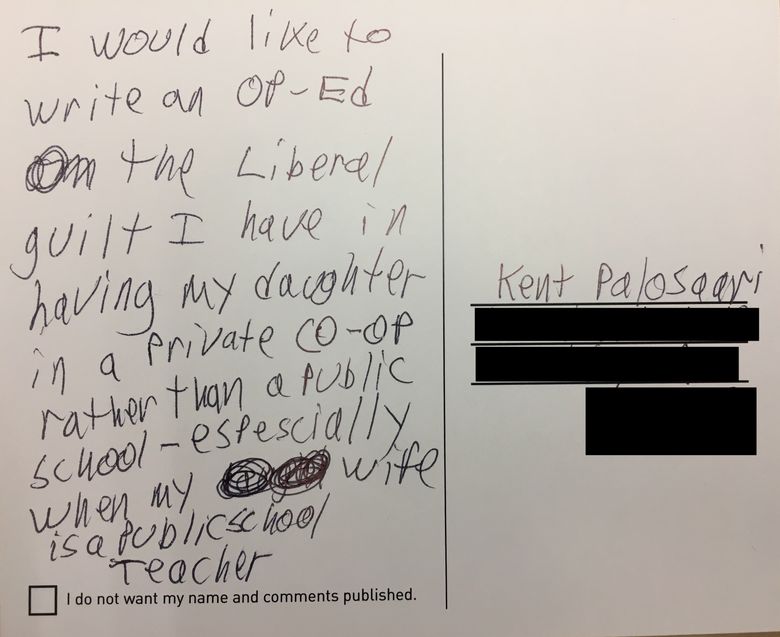 I would like to
write an OP-Ed
on the Liberal
guilt I have in
having my daughter
in a private CO-OP
rather than a public
school - espescially
when my wife
is a public school
Teacher
I do not want my name and comments published.
Kent Palosaari